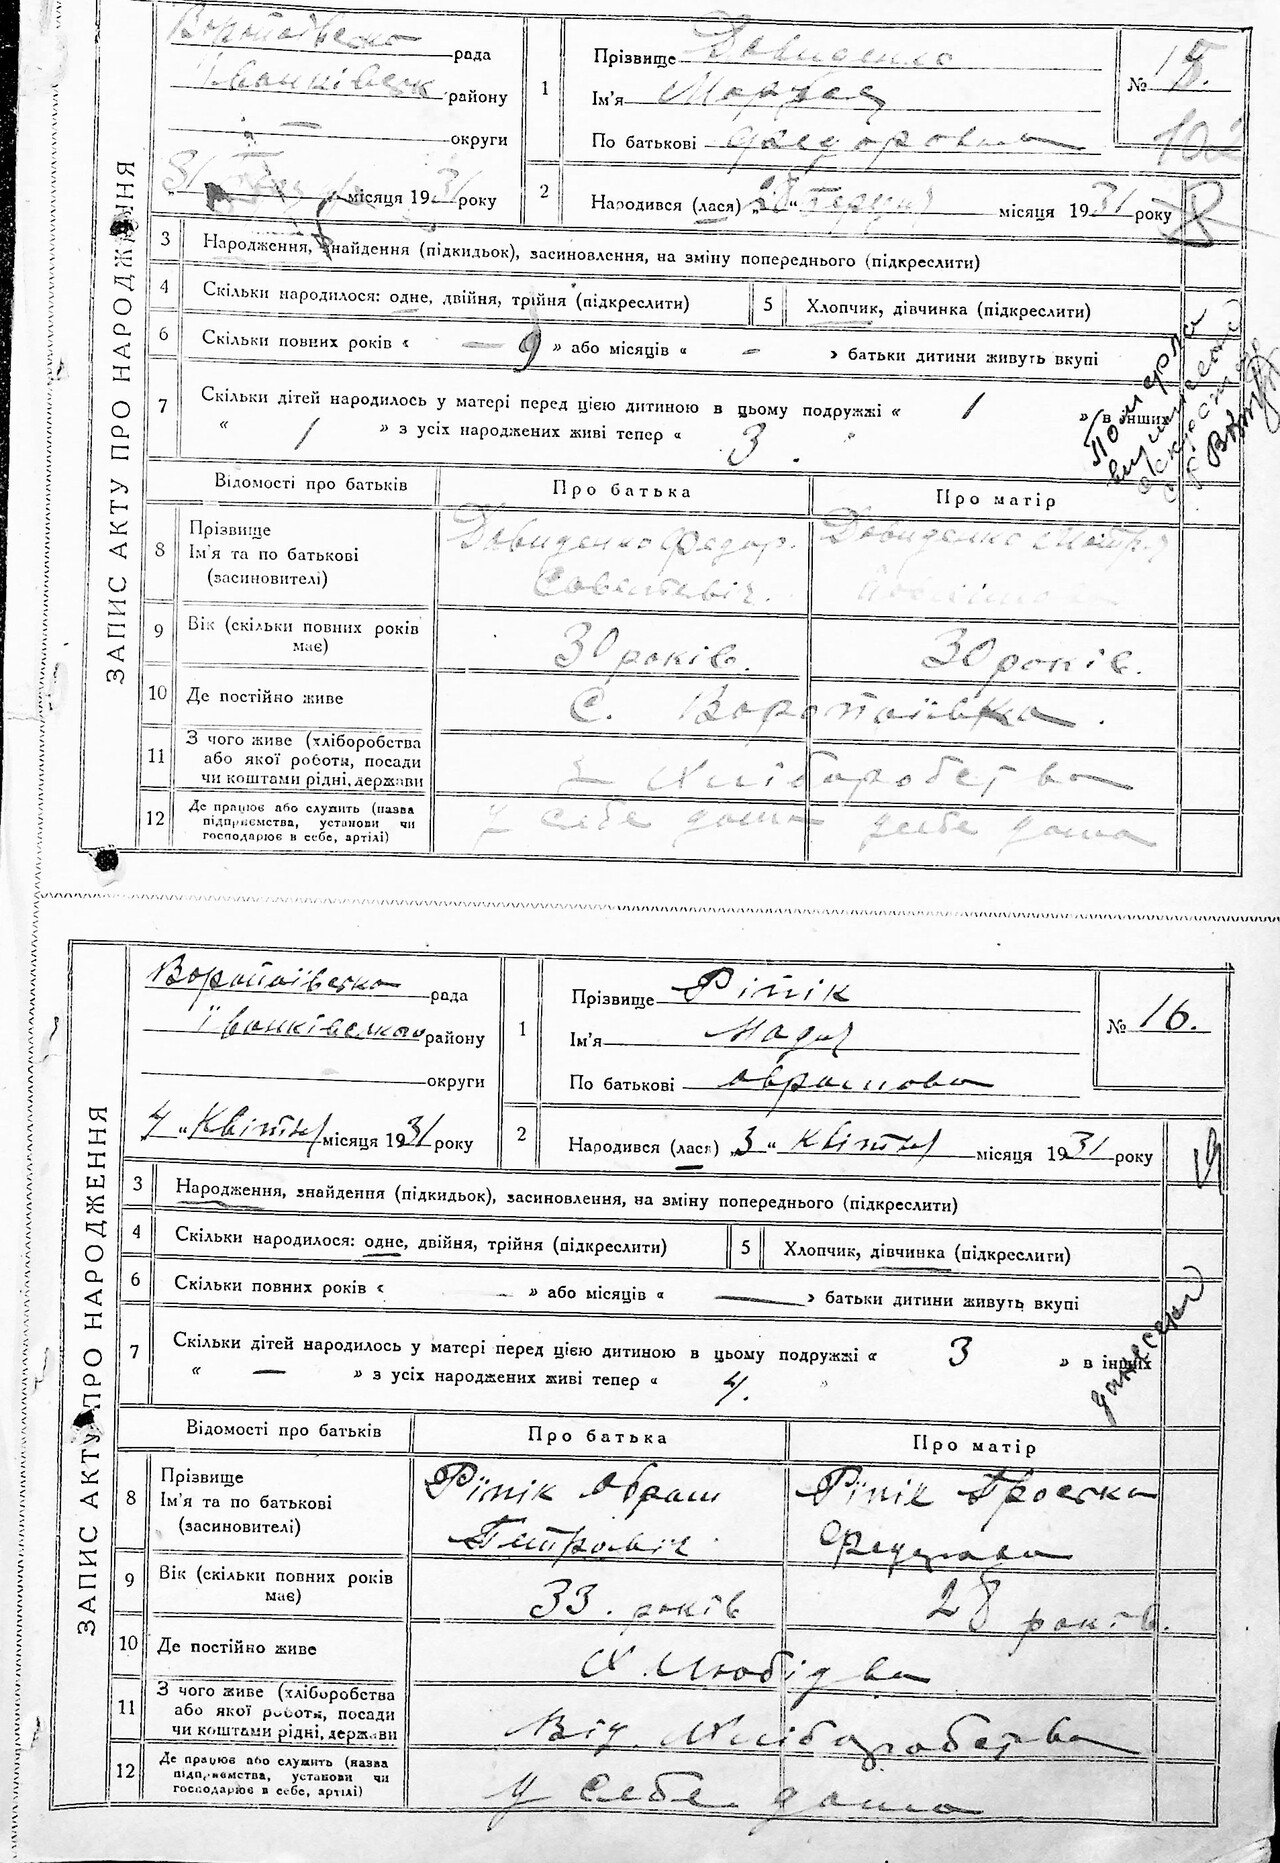 ЗАПИС АКТУ ПРО НАРОДЖЕННЯ
Воропаївська рада
Іванківськ району
— округи
31 місяця 1931 року
1 Прізвище Давиденко
Ім'я
По батькові Федоровна
№ 15.
2 Народився (лася) „28“ березня місяця 1931 року
3 Народження, знайдення (підкидьок), засиновлення, на зміну попереднього (підкреслити)
4 Скільки народилося: одне, двійня, трійня (підкреслити)
5 Хлопчик, дівчинка (підкреслити)
6 Скільки повних років « — 9 » або місяців « - » батьки дитини живуть вкупі
7 Скільки дітей народилось у матері перед цією дитиною в цьому подружжі « 1 » в інших
« 1 » з усіх народжених живі тепер « 3. »
Відомості про батьків Про батька Про матір
8 Прізвище
Ім'я та по батькові
(засиновителі)
Давиденко Федор.
Савватевіч.
Давиденко
9 Вік (скільки повних років має) 30 років. 30 років.
10 Де постійно живе С. Воропаївка.
11 З чого живе (хліборобства
або якої роботи, посади
чи коштами рідні, держави
З хліборобства
12 Де працює або служить (назва
підприємства, установи чи
господарює в себе, артілі)
У себе дома у себе дома
ЗАПИС АКТУ ПРО НАРОДЖЕННЯ
Воропаївська рада
Іванківського району
округи
4 „Квітня місяця 1931 року
1 Прізвище Ріпік
Ім'я Надія
По батькові Аврамовна
№ 16.
2 Народився (лася) „3“ квітня місяця 1931 року
3 Народження, знайдення (підкидьок), засиновлення, на зміну попереднього (підкреслити)
4 Скільки народилося: одне, двійня, трійня (підкреслити)
5 Хлопчик, дівчинка (підкреслити)
6 Скільки повних років « — » або місяців « — » батьки дитини живуть вкупі
7 Скільки дітей народилось у матері перед цією дитиною в цьому подружжі « 3 » в інших
« — » з усіх народжених живі тепер « 4. »
Відомості про батьків Про батька Про матір
8 Прізвище
Ім'я та по батькові
(засиновителі)
Ріпік Аврам
Петровіч
Ріпік
Федоровна
9 Вік (скільки повних років має) 33. років 28 років.
10 Де постійно живе Х.
11 З чого живе (хліборобства
або якої роботи, посади
чи коштами рідні, держави
Від хліборобства
12 Де працює або служить (назва
підприємства, установи чи
господарює в себе, артілі)
У себе дома